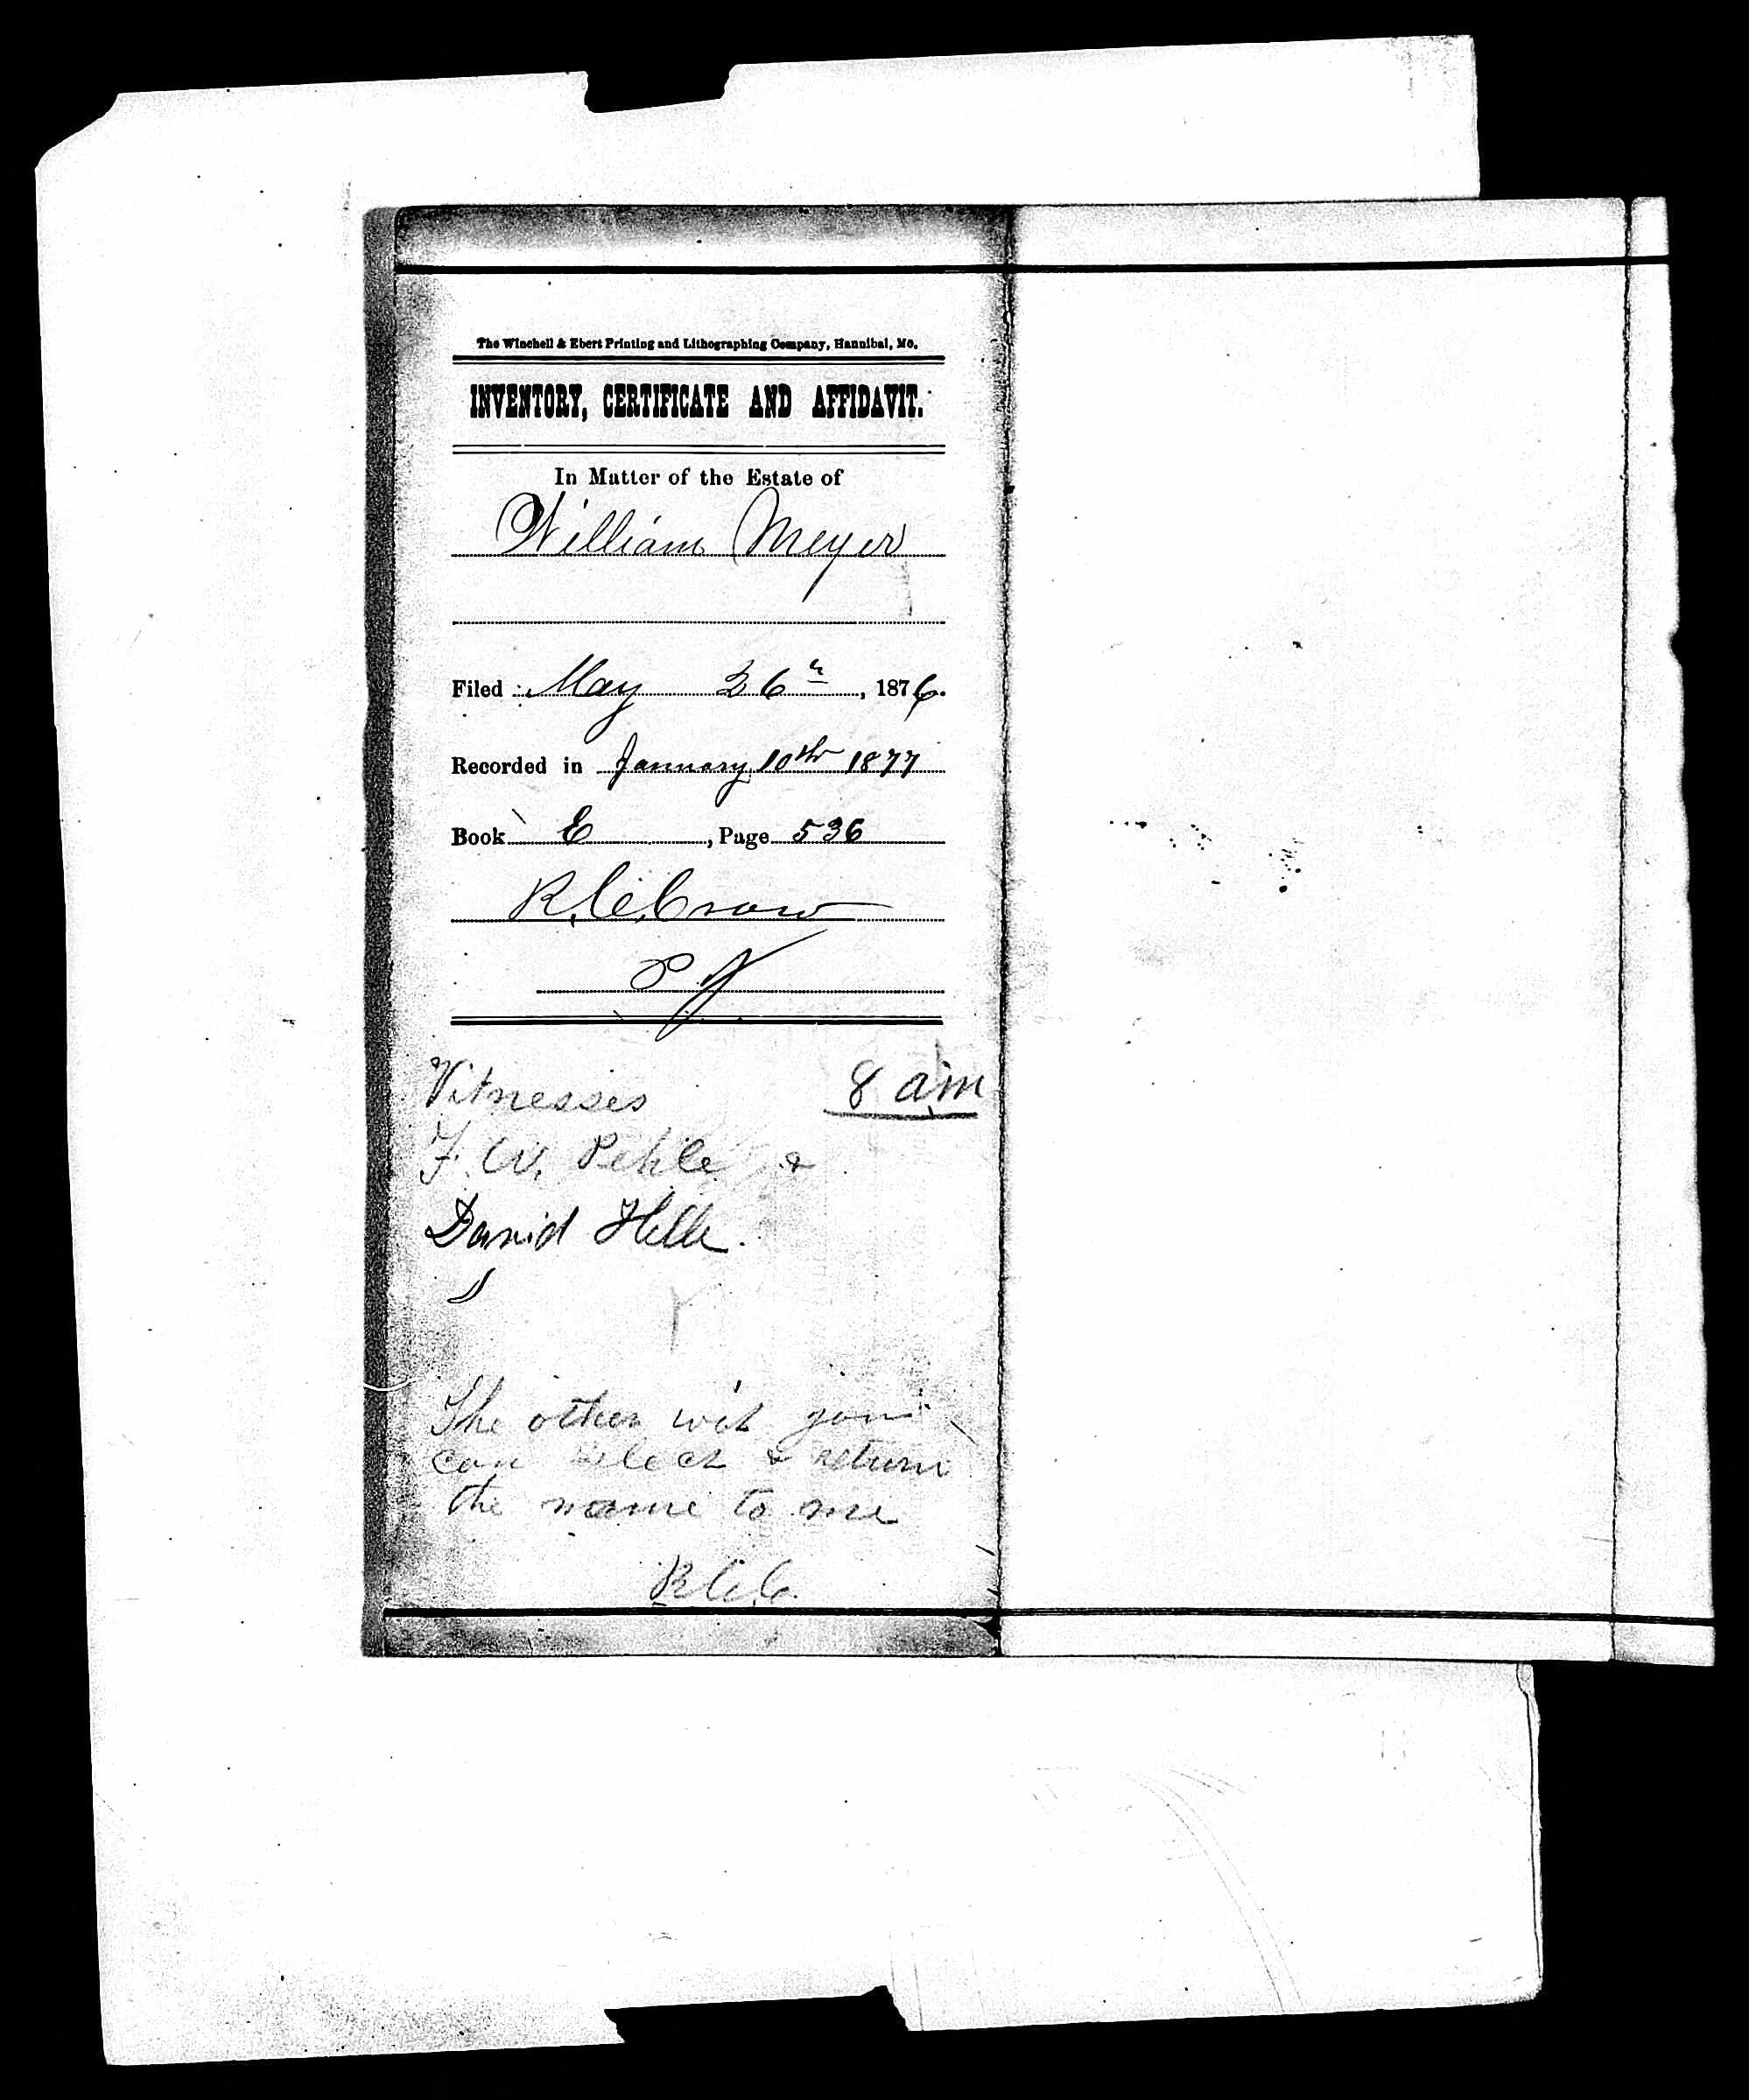 The Winchell & Ebert Printing and Lithographing Company, Hannibal, Mo.
INVENTORY, CERTIFICATE AND AFFIDAVIT.
In Matter of the Estate of
William Meyer
Filed May 26th, 1876.
Recorded in January 10th 1877
Book E, Page 536
R. C. Crow
P J
Witnesses 8 am
F. W. Pehle &
David Helle.
The other wit you
can select & return
the name to me
R C C.